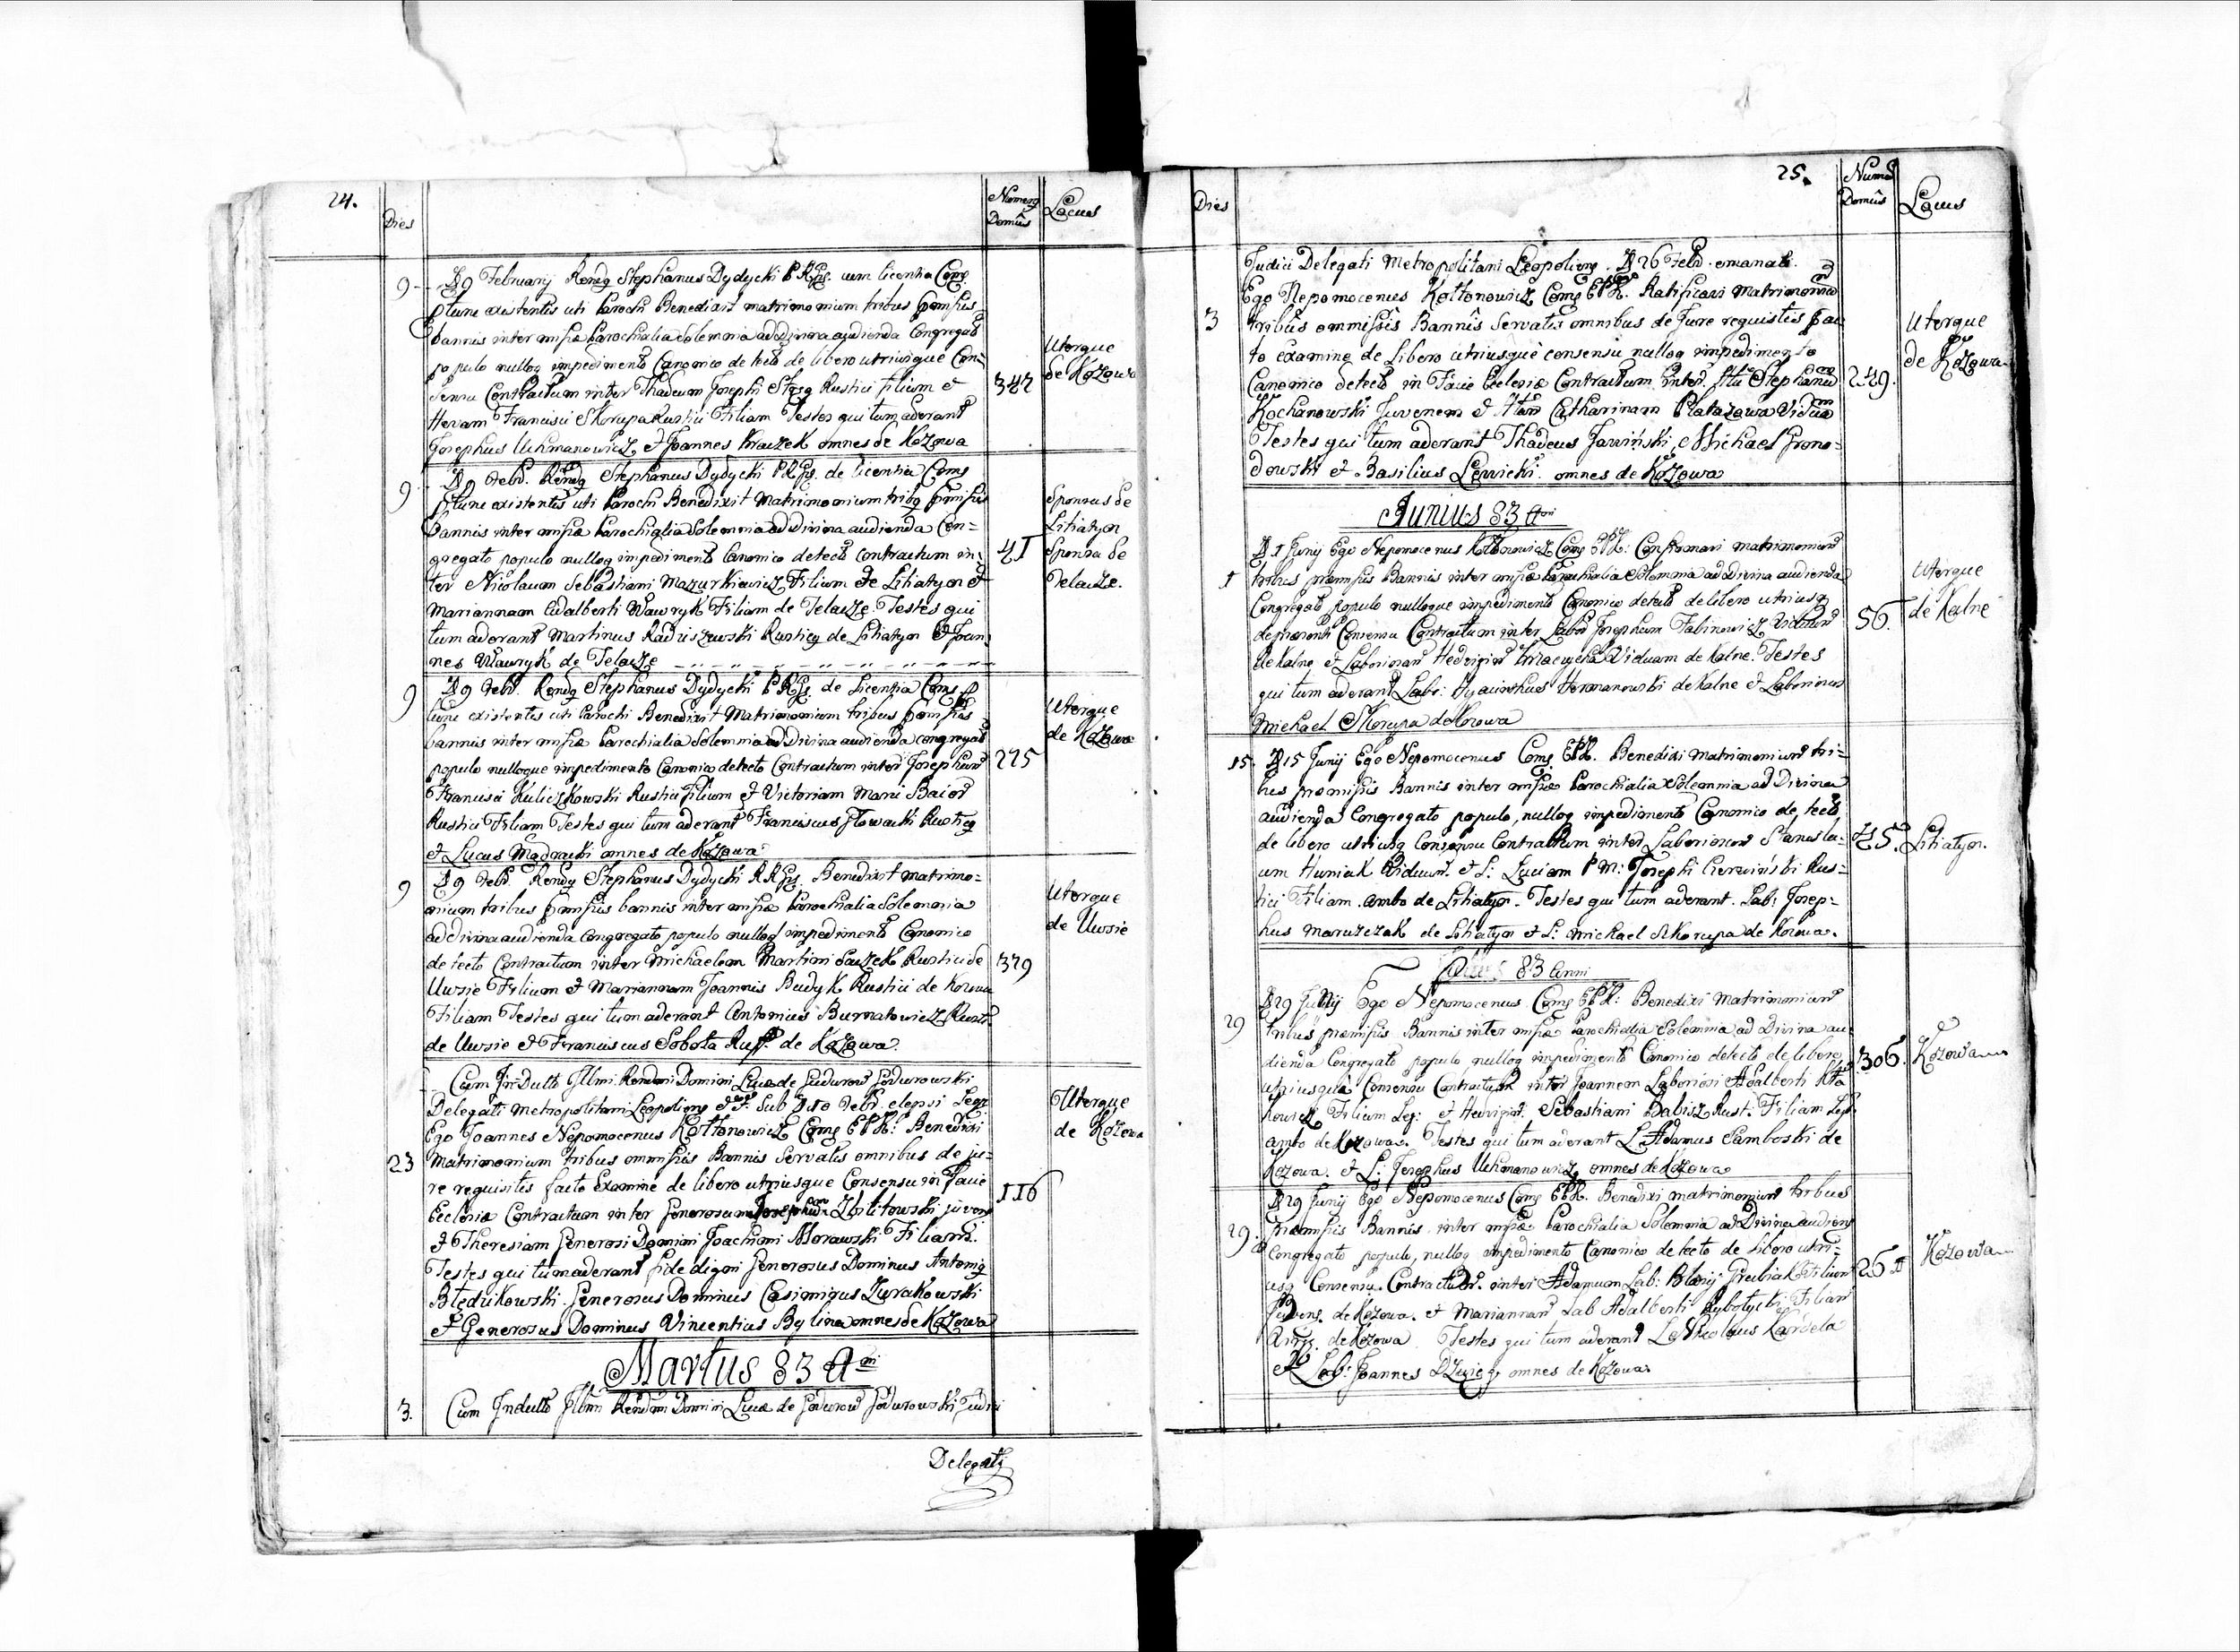 24.
Dies
Numerq Domûs
Locus
9 D 9 Februarij Rendq Stephanus Dydycki P. R. cum licentia Comq
ptunc existentis uti Parochi Benedixit matrimonium tribus pmissis
bannis inter missæ Parochialia Solemnia ad Divina audienda Congregato
populo nulloq impedimento Canonico detecto de libero utriusque Con=
sensu Contractum inter Thadeum Josephi Rustici filium et
Francisci Skorupa Rustici Filiam Testes qui tum aderant
Josephus Uhmanowicz et Joannes Kraczek omnes de Kozowa
342
Uterque
de Kozowa
9 D 9 Febr. Rendq Stephanus Dydycki de licentia Comq
ptunc existentis uti Parochi Benedixit Matrimonium tribq pmissis
Bannis inter missæ Parochialia Solemnia ad Divina audienda Con=
gregato populo nulloq impedimento Canonico detecto Contractum in=
ter Nicolaum Sebastiani Mazurkiewicz Filium de Litiatyn et
Mariannam Adalberti Wawryk Filiam de Telacze. Testes qui
tum aderant Martinus Radziszewski Rusticq de Litiatyn et Joan
nes Wawryk de Telacze
41
Sponsus de
Litiatyn
Sponsa de
Telacze.
9 D 9 Febr. Rendq Stephanus Dydycki de Licentia Comq p
tunc existentis uti Parochi Benedixit Matrimonium tribus pmissis
bannis inter missæ Parochialia Solemnia ad Divina audienda congregato
populo nulloque impedimento Canonico detecto Contractum inter Josephum
Francisci Kuliczkowski Rustici filium et Victoriam
Rustici Filiam Testes qui tum aderant Franciscus Rusticq
et Lucas omnes de Kozowa
225
Uterque
de Kozowa
9 D 9 Febr. Rendq Stephanus Dydycki Benedixit matrimo=
nium tribus pmissis bannis inter missæ Parochialia Solemnia
ad divina audienda Congregato populo nulloq impedimento Canonico
detecto Contractum inter Michaelem Martini Rustici de
Uwsie Filium et Mariannam Joannis Budyk Rustici de Kozowa
Filiam Testes qui tum aderant Antonius Burnatowicz
de Uwsie et Franciscus Sobota de Kozowa.
379
Uterque
de Uwsie
Cum Indulto Illmi Rendmi Domini Lucæ de
Delegati Metropolitani Leopoliens Sub D 10 Febr. elapsi
Ego Joannes Nepomocenus Kołtonowicz Comq Benedixi
23 Matrimonium tribus ommissis Bannis Servatis omnibus de ju=
re requisitis facto Examine de libero utriusque Consensu in Facie
Ecclesiæ Contractum inter Generosum Josephum Zbilitowski
et Theresiam Generosi Domini Joachimi Morawski Filiam.
Testes qui tum aderant fide digni Generosus Dominus Antoniq
Błędzikowski. Generosus Dominus Casimirus Zurakowski
et Generosus Dominus Vincentius Bylina omnes de Kozowa
116
Uterque
de Kozowa
Martius 83 Ani
3. Cum Indulto Illmi Rendmi Domini Lucæ de
Delegati
25.
Dies
Numerq Domûs
Locus
Judici Delegati Metropolitani Leopoliens. D 26 Febr. emanati.
Ego Nepomocenus Kołtonowicz Comq Ratificavi Matrimonium
3 tribûs ommissîs Bannîs Servatis omnibus de Jure requisitis fac
to examine de Libero utriusque consensu nulloq impedimento
Canonico detecto in Facie Ecclesiæ Contractum inter Stephanum
Kochanowski Juvenem et Catharinam Viduam
Testes qui tum aderant Thadeus Jawiński, Michael Grono=
dowski et Basilius Lewicki omnes de Kozowa
249.
Uterque
de Kozowa
Junius 83 Ani
D 1 Junij Ego Nepomocenus Kołtonowicz Comq Confirmavi matrimonium
1 tribus præmissis Bannis inter missæ Parochialia Solemnia ad Divina audienda
Congregato populo nulloque impedimento Canonico detecto de libero utriusq
de præsenti Consensu Contractum inter Josephum Fabinowicz Viduum
de Kalne et Laboriosam Viduam de Kalne. Testes
qui tum aderant Labr: Hyacinthus Hermanowski de Kalne et Laboriosus
Michael Skorupa de Kozowa
56.
Uterque
de Kalne
15. D 15 Junij Ego Nepomocenus Comq Benedixi Matrimonium tri=
bus præmissis Bannis inter missæ Parochialia Solemnia ad Divina
audienda Congregato populo, nulloq impedimento Canonico detecto
de libero utriusq Consensu Contractum inter Laboriosum Stanisla=
um Huniak Viduum. et L: Luciam P M: Josephi Czerwiński Rus=
tici Filiam. ambo de Litiatyn. Testes qui tum aderant. Lab: Josep=
hus Maruszczak de Litiatyn et L: Michael Skorupa de Kozowa.
Litiatyn.
83 Anni
D 29 Ego Nepomocenus Comq Benedixi Matrimonium
29 tribus præmissis Bannis inter missæ Parochialia Solemnia ad Divina au
dienda Congregato populo, nulloq impedimento Canonico detecto de libero
utriusque Consensu Contractum inter Joannem Laboriosi Adalberti
Filium Leg: et Sebastiani Babisz Rust: Filiam
ambo de Kozowa. Testes qui tum aderant L Adamus Samborski de
Kozowa. et L: Josephus Uhmanowicz omnes de Kozowa
306.
Kozowa
D 29 Junij Ego Nepomocenus Comq Benedixi matrimonium tribus
29. præmissis Bannis inter missæ Parochialia Solemnia ad Divina audien
Congregato populo, nulloq impedimento Canonico detecto de libero utri=
usq Consensu Contractum. inter Adamum Lab: Blasij Filium
de Kozowa. et Mariannam Lab Adalberti Rybotycki Filiam
de Kozowa Testes qui tum aderant Nicolaus
et Lab: Joannes omnes de Kozowa.
Kozowa